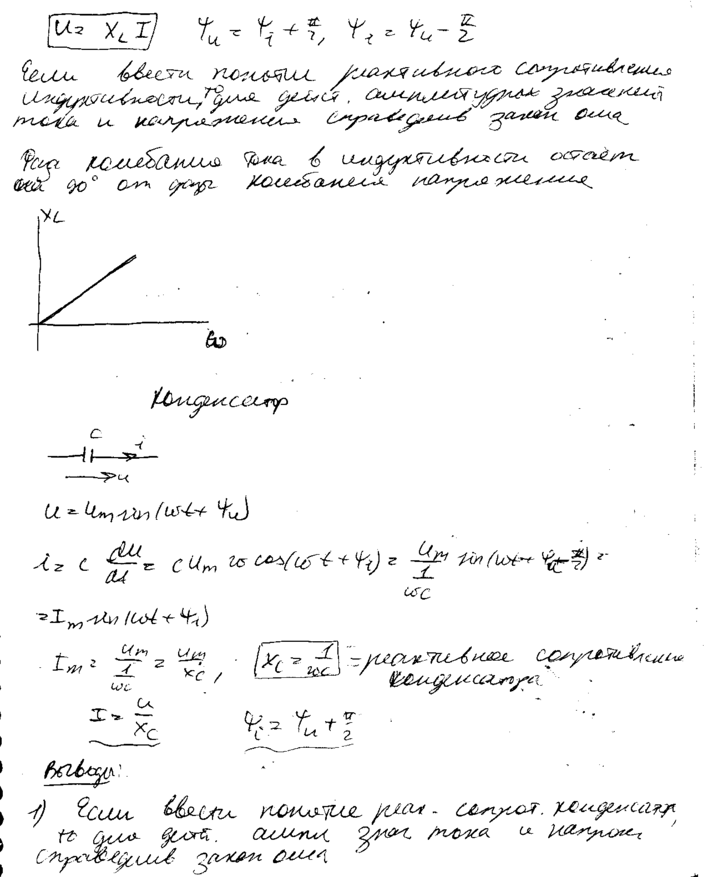 U = X_L I   Ψ_u = Ψ_i + π/2, Ψ_i = Ψ_u - π/2
Если ввести понятие реактивного сопротивления
индуктивности, то для дейст. амплитудных значений
тока и напряжения справедлив закон ома
Фаза колебания тока в индуктивности остаёт
на 90° от фазы колебания напряжения
X_L
ω
Конденсатор
C i
u
u = U_m sin(ωt + Ψ_u)
i = C du/dt = C U_m ω cos(ωt + Ψ_i) = U_m/(1/ωC) sin(ωt + Ψ_u π/2) =
= I_m sin(ωt + Ψ_i)
I_m = U_m/(1/ωC) = U_m/X_C, X_C = 1/ωC = реактивное сопротивление
конденсатора
I = U/X_C   Ψ_i = Ψ_u + π/2
Выводы:
1) Если ввести понятие реак. сопрот. конденсатор,
то для дейт. ампл знач тока и напряж
справедлив закон ома